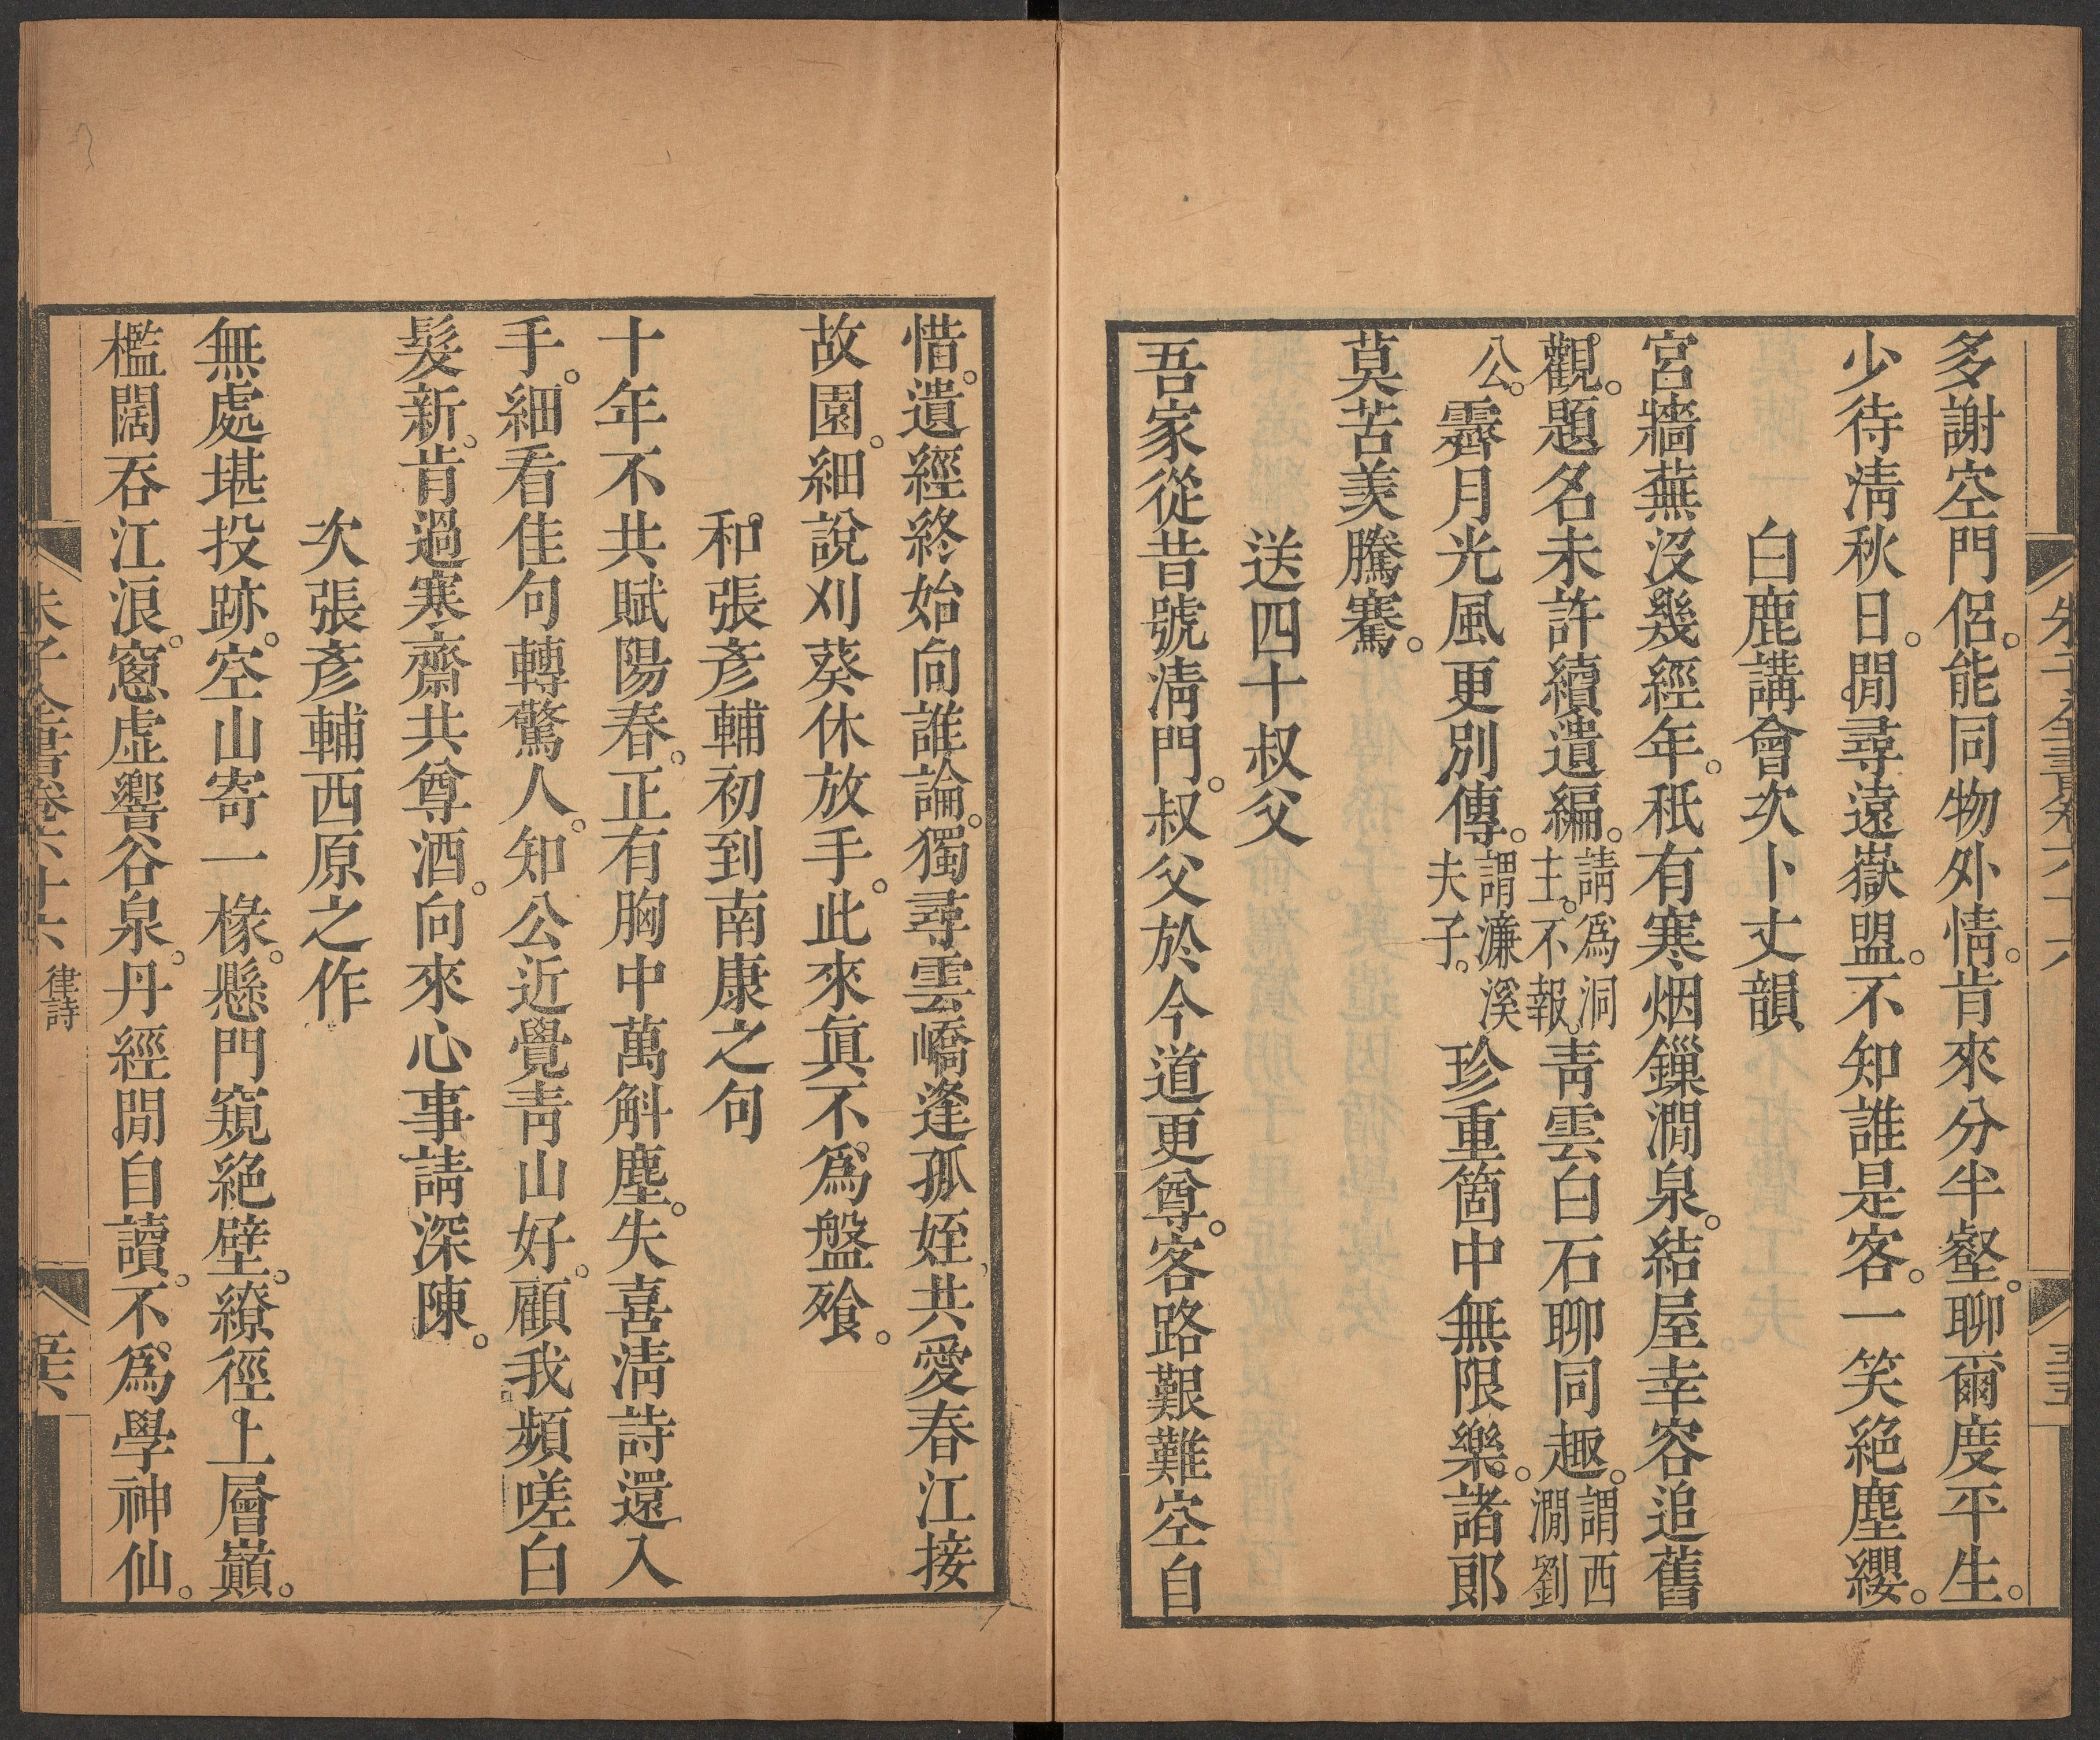 朱子全書卷六十六
多謝空門侶。能同物外情。肯來分半壑。聊爾度平生。
少待淸秋日。閒尋遠嶽盟。不知誰是客。一笑絶塵纓。
白鹿講會次卜丈韻
宮牆蕪沒幾經年。秖有寒烟鏁澗泉。結屋幸容追舊
觀。題名未許續遺編。請爲洞主。不報。靑雲白石聊同趣。謂西澗劉
公。霽月光風更別傳。謂濂溪夫子。珍重箇中無限樂。諸郎
莫苦羡騰騫。
送四十叔父
吾家從昔號淸門。叔父於今道更尊。客路艱難空自
惜。遺經終始向誰論。獨尋雲嶠逢孤姪。共愛春江接
故園。細說刈葵休放手。此來眞不爲盤飱。
和張彥輔初到南康之句
十年不共賦陽春。正有胸中萬斛塵。失喜淸詩還入
手。細看佳句轉驚人。知公近覺靑山好。顧我頻嗟白
髮新。肯過寒齋共尊酒。向來心事請深陳。
次張彥輔西原之作
無處堪投跡。空山寄一椽。懸門窺絶壁。繚徑上層巔。
檻闊吞江浪。窻虛響谷泉。丹經閒自讀。不爲學神仙。
朱子全書卷六十六 律詩